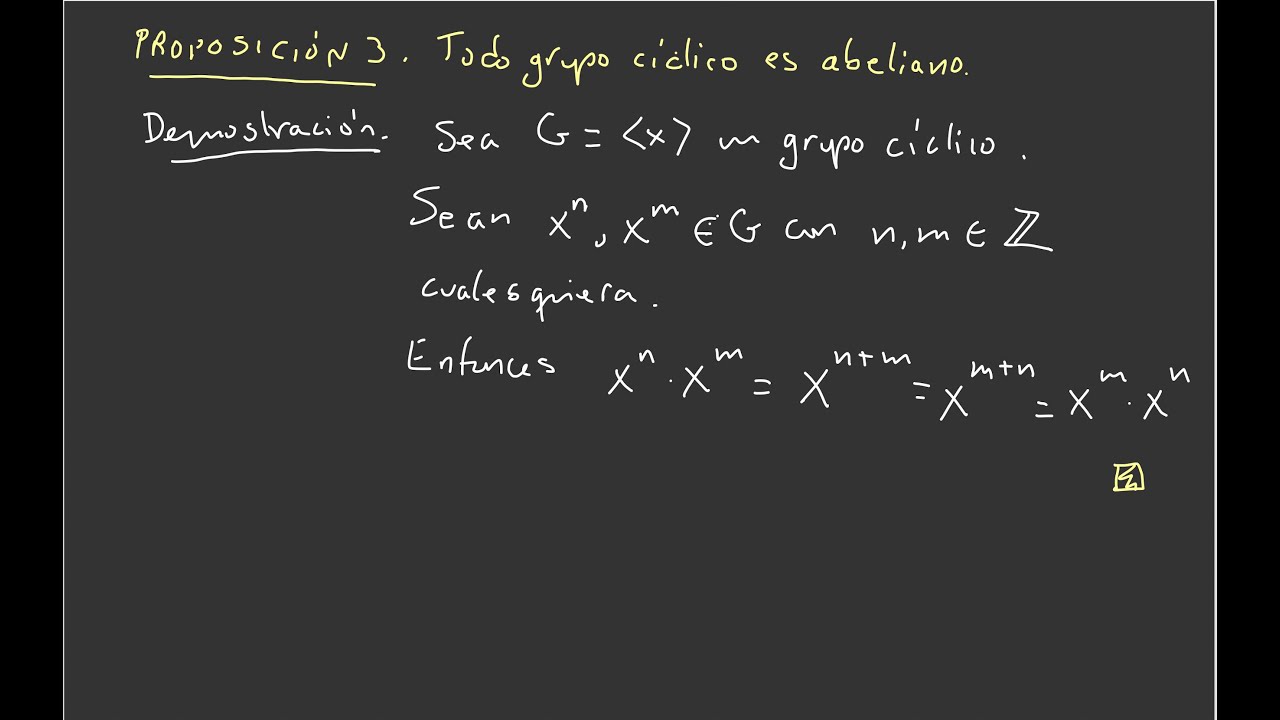 PROPOSICIÓN 3. Todo grupo cíclico es abeliano.
Demostración. Sea G = <x> un grupo cíclico.
Sean xⁿ, xᵐ ∈ G con n, m ∈ ℤ
cualesquiera.
Entonces xⁿ · xᵐ = xⁿ⁺ᵐ = xᵐ⁺ⁿ = xᵐ · xⁿ